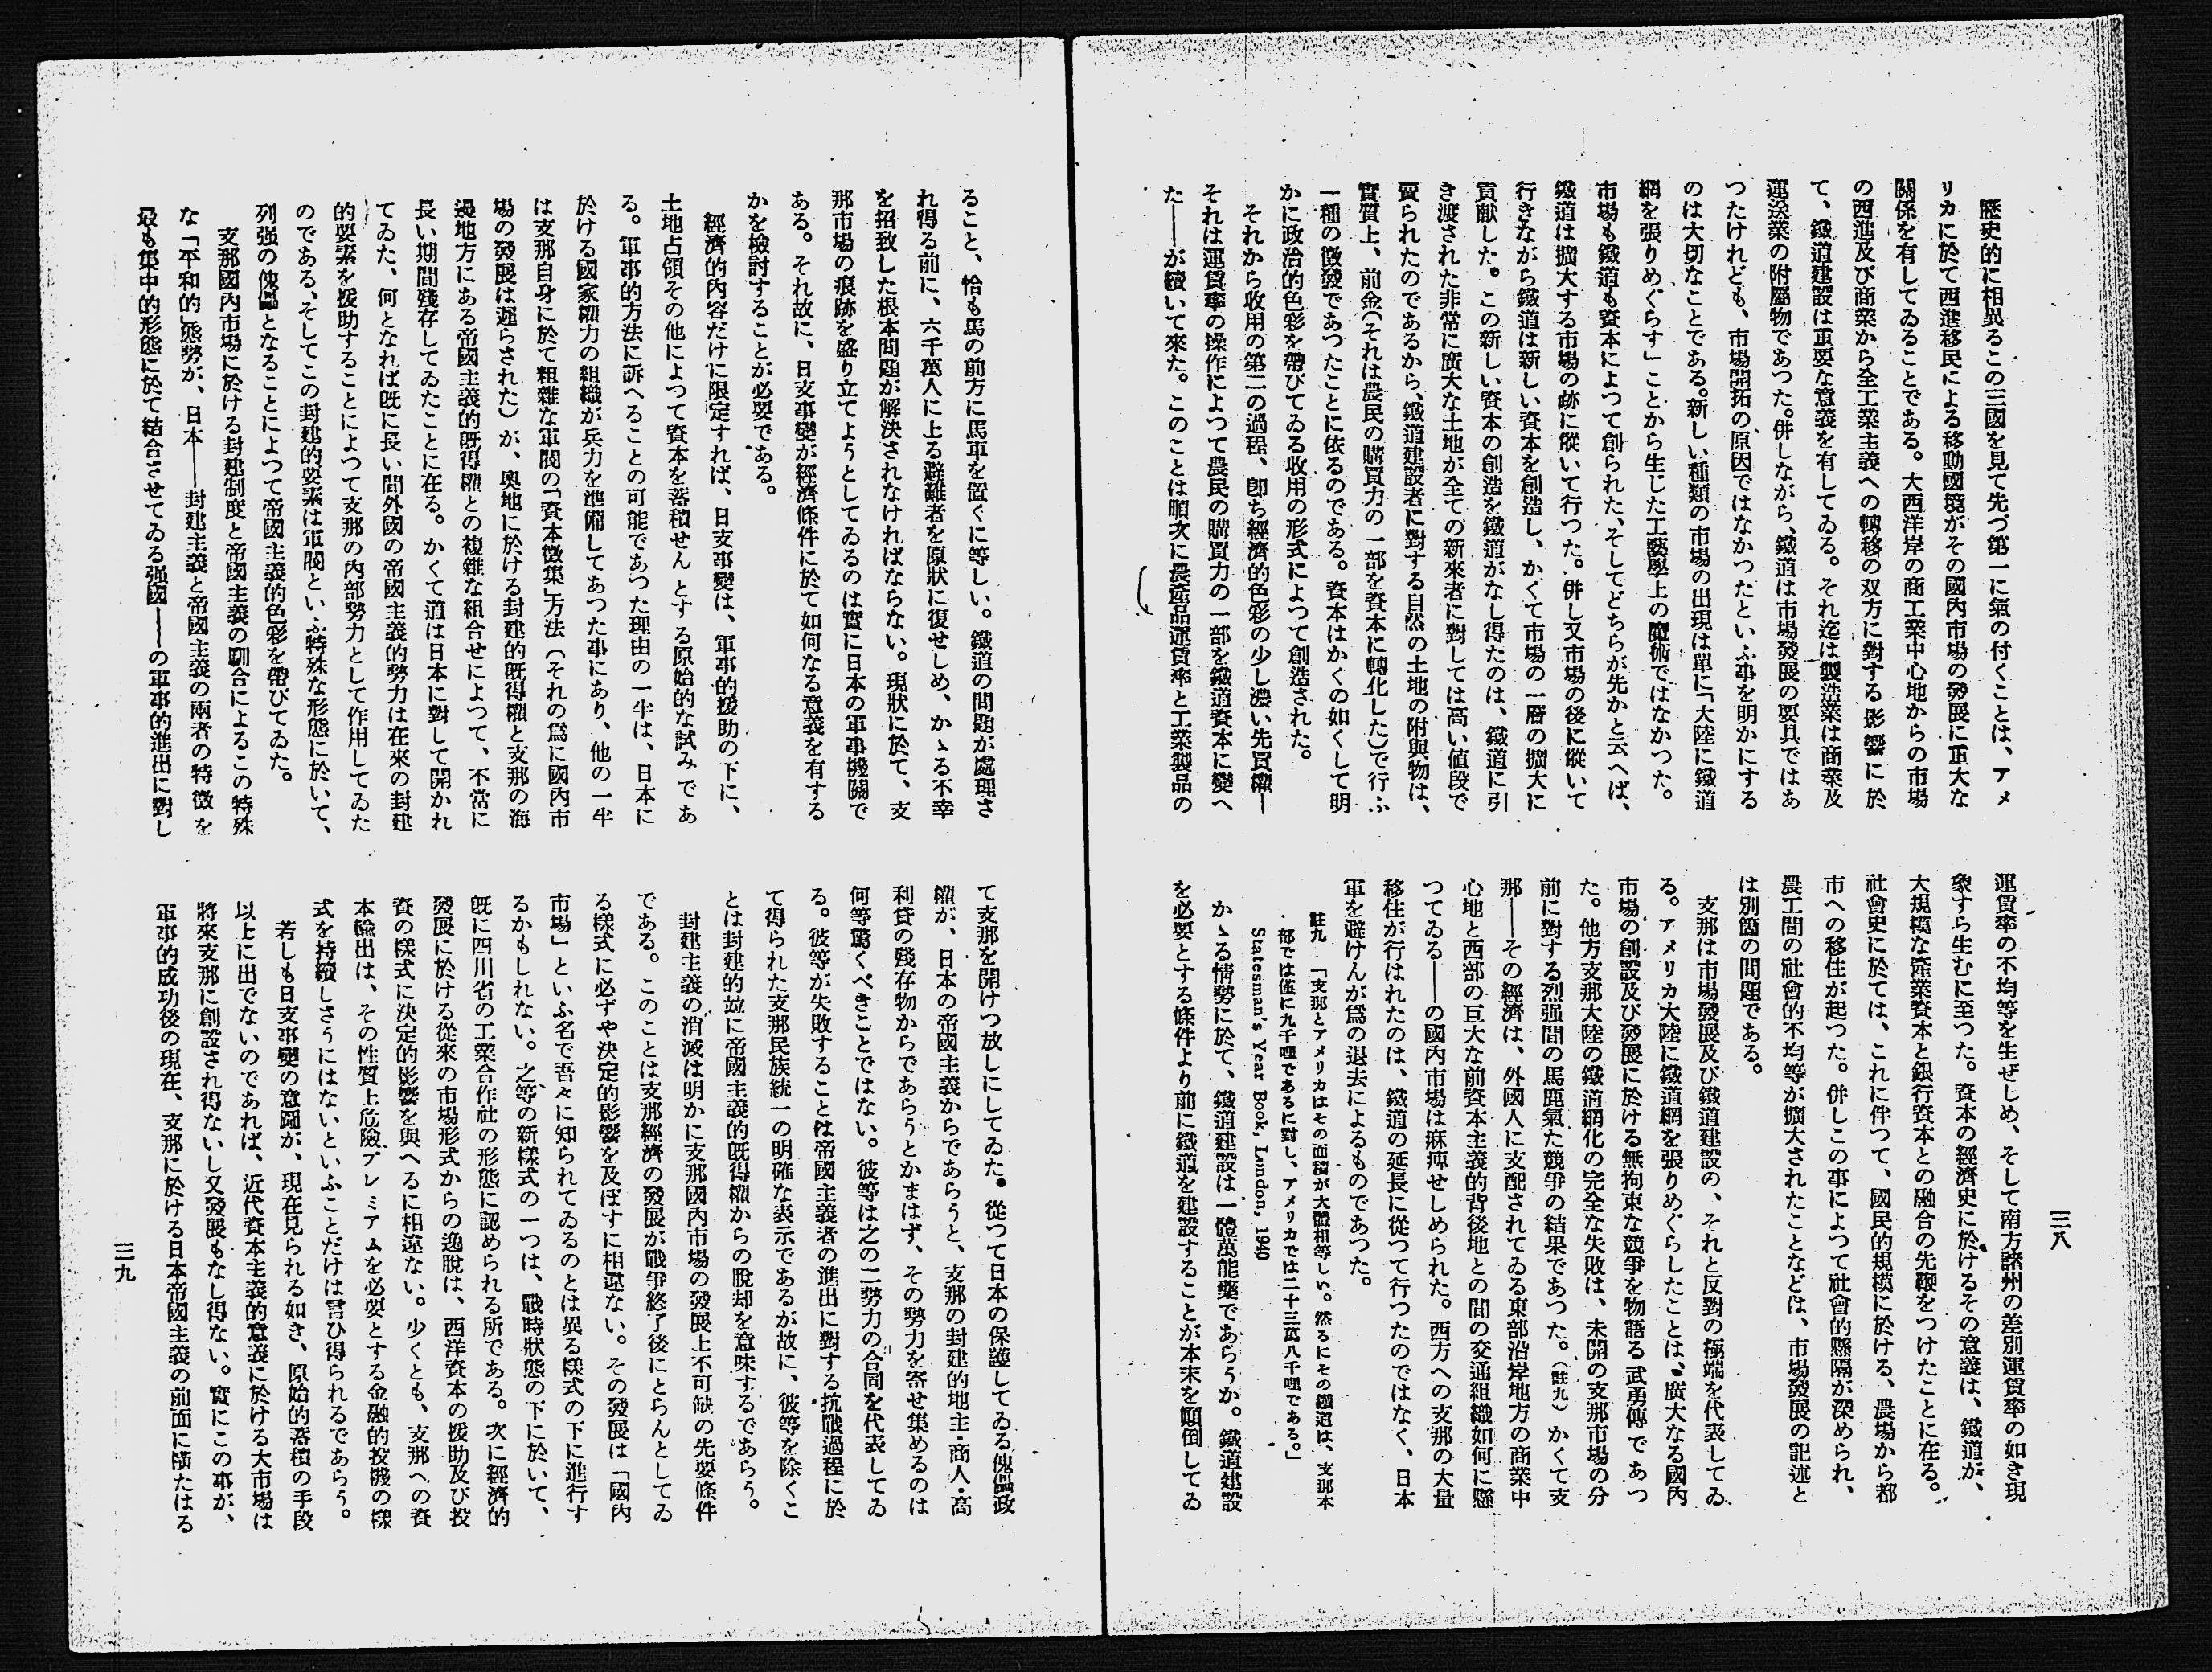 歷史的に相異るこの三國を見て先づ第一に氣の付くことは、アメ
リカに於て西進移民による移動國境がその國內市場の發展に重大な
關係を有してゐることである。大西洋岸の商工業中心地からの市場
の西進及び商業から全工業主義への轉移の双方に對する影響に於
て、鐵道建設は重要な意義を有してゐる。それ迄は製造業は商業及
運送業の附屬物であつた。併しながら、鐵道は市場發展の要具ではあ
つたけれども、市場開拓の原因ではなかつたといふ事を明かにする
のは大切なことである。新しい種類の市場の出現は單に「大陸に鐵道
網を張りめぐらす」ことから生じた工藝學上の魔術ではなかつた。
市場も鐵道も資本によつて創られた、そしてどちらが先かと云へば、
鐵道は擴大する市場の跡に從いて行つた。併し又市場の後に從いて
行きながら鐵道は新しい資本を創造し、かくて市場の一層の擴大に
貢献した。この新しい資本の創造を鐵道がなし得たのは、鐵道に引
き渡された非常に廣大な土地が全ての新來者に對しては高い値段で
賣られたのであるから、鐵道建設者に對する自然の土地の附與物は、
實質上、前金(それは農民の購買力の一部を資本に轉化した)で行ふ
一種の徵發であつたことに依るのである。資本はかくの如くして明
かに政治的色彩を帶びてゐる收用の形式によつて創造された。
それから收用の第二の過程、卽ち經濟的色彩の少し濃い先買權―
それは運賃率の操作によつて農民の購買力の一部を鐵道資本に變へ
た――が續いて來た。このことは順次に農產品運賃率と工業製品の
運賃率の不均等を生ぜしめ、そして南方諸州の差別運賃率の如き現
象すら生むに至つた。資本の經濟史に於けるその意義は、鐵道が、
大規模な產業資本と銀行資本との融合の先鞭をつけたことに在る。
社會史に於ては、これに伴つて、國民的規模に於ける、農場から都
市への移住が起つた。併しこの事によつて社會的懸隔が深められ、
農工間の社會的不均等が擴大されたことなどは、市場發展の記述と
は別箇の問題である。
支那は市場發展及び鐵道建設の、それと反對の極端を代表してゐ
る。アメリカ大陸に鐵道網を張りめぐらしたことは、廣大なる國內
市場の創設及び發展に於ける無拘束な競爭を物語る武勇傳であつ
た。他方支那大陸の鐵道網化の完全な失敗は、未開の支那市場の分
前に對する烈强間の馬鹿氣た競爭の結果であつた。(註九)かくて支
那――その經濟は、外國人に支配されてゐる東部沿岸地方の商業中
心地と西部の巨大な前資本主義的背後地との間の交通組織如何に懸
つてゐる――の國內市場は麻痺せしめられた。西方への支那の大量
移住が行はれたのは、鐵道の延長に從つて行つたのではなく、日本
軍を避けんが爲の退去によるものであつた。
註九 「支那とアメリカはその面積が大體相等しい。然るにその鐵道は、支那本
部では僅に九千哩であるに對し、アメリカでは二十三萬八千哩である。」
Statesman's Year Book, London, 1940
かゝる情勢に於て、鐵道建設は一體萬能藥であらうか。鐵道建設
を必要とする條件より前に鐵道を建設することが本末を顚倒してゐ
三八
ること、恰も馬の前方に馬車を置くに等しい。鐵道の問題が處理さ
れ得る前に、六千萬人に上る避難者を原狀に復せしめ、かゝる不幸
を招致した根本問題が解決されなければならない。現狀に於て、支
那市場の痕跡を盛り立てようとしてゐるのは實に日本の軍事機關で
ある。それ故に、日支事變が經濟條件に於て如何なる意義を有する
かを檢討することが必要である。
經濟的內容だけに限定すれば、日支事變は、軍事的援助の下に、
土地占領その他によつて資本を蓄積せんとする原始的な試みであ
る。軍事的方法に訴へることの可能であつた理由の一半は、日本に
於ける國家權力の組織が兵力を準備してあつた事にあり、他の一半
は支那自身に於て粗雜な軍閥の「資本徵集」方法(それの爲に國內市
場の發展は遲らされた)が、奧地に於ける封建的既得權と支那の海
邊地方にある帝國主義的既得權との複雜な組合せによつて、不當に
長い期間殘存してゐたことに在る。かくて道は日本に對して開かれ
てゐた、何となれば既に長い間外國の帝國主義的勢力は在來の封建
的要素を援助することによつて支那の內部勢力として作用してゐた
のである、そしてこの封建的要素は軍閥といふ特殊な形態に於いて、
列强の傀儡となることによつて帝國主義的色彩を帶びてゐた。
支那國內市場に於ける封建制度と帝國主義の聯合によるこの特殊
な「平和的」態勢が、日本――封建主義と帝國主義の兩者の特徵を
最も集中的形態に於て結合させてゐる强國――の軍事的進出に對し
て支那を開けつ放しにしてゐた。從つて日本の保護してゐる傀儡政
權が、日本の帝國主義からであらうと、支那の封建的地主・商人・高
利貸の殘存物からであらうとかまはず、その勢力を寄せ集めるのは
何等驚くべきことではない。彼等は之の二勢力の合同を代表してゐ
る。彼等が失敗することは帝國主義者の進出に對する抗戰過程に於
て得られた支那民族統一の明確な表示であるが故に、彼等を除くこ
とは封建的並に帝國主義的既得權からの脫却を意味するであらう。
封建主義の消滅は明かに支那國內市場の發展上不可缺の先要條件
である。このことは支那經濟の發展が戰爭終了後にとらんとしてゐ
る樣式に必ずや決定的影響を及ぼすに相違ない。その發展は「國內
市場」といふ名で吾々に知られてゐるのとは異る樣式の下に進行す
るかもしれない。之等の新樣式の一つは、戰時狀態の下に於いて、
既に四川省の工業合作社の形態に認められる所である。次に經濟的
發展に於ける從來の市場形式からの逸脫は、西洋資本の援助及び投
資の樣式に決定的影響を與へるに相違ない。少くとも、支那への資
本輸出は、その性質上危險プレミアムを必要とする金融的投機の樣
式を持續しさうにはないといふことだけは言ひ得られるであらう。
若しも日支事變の意圖が、現在見られる如き、原始的蓄積の手段
以上に出でないのであれば、近代資本主義的意義に於ける大市場は
將來支那に創設され得ないし又發展もなし得ない。實にこの事が、
軍事的成功後の現在、支那に於ける日本帝國主義の前面に橫たはる
三九